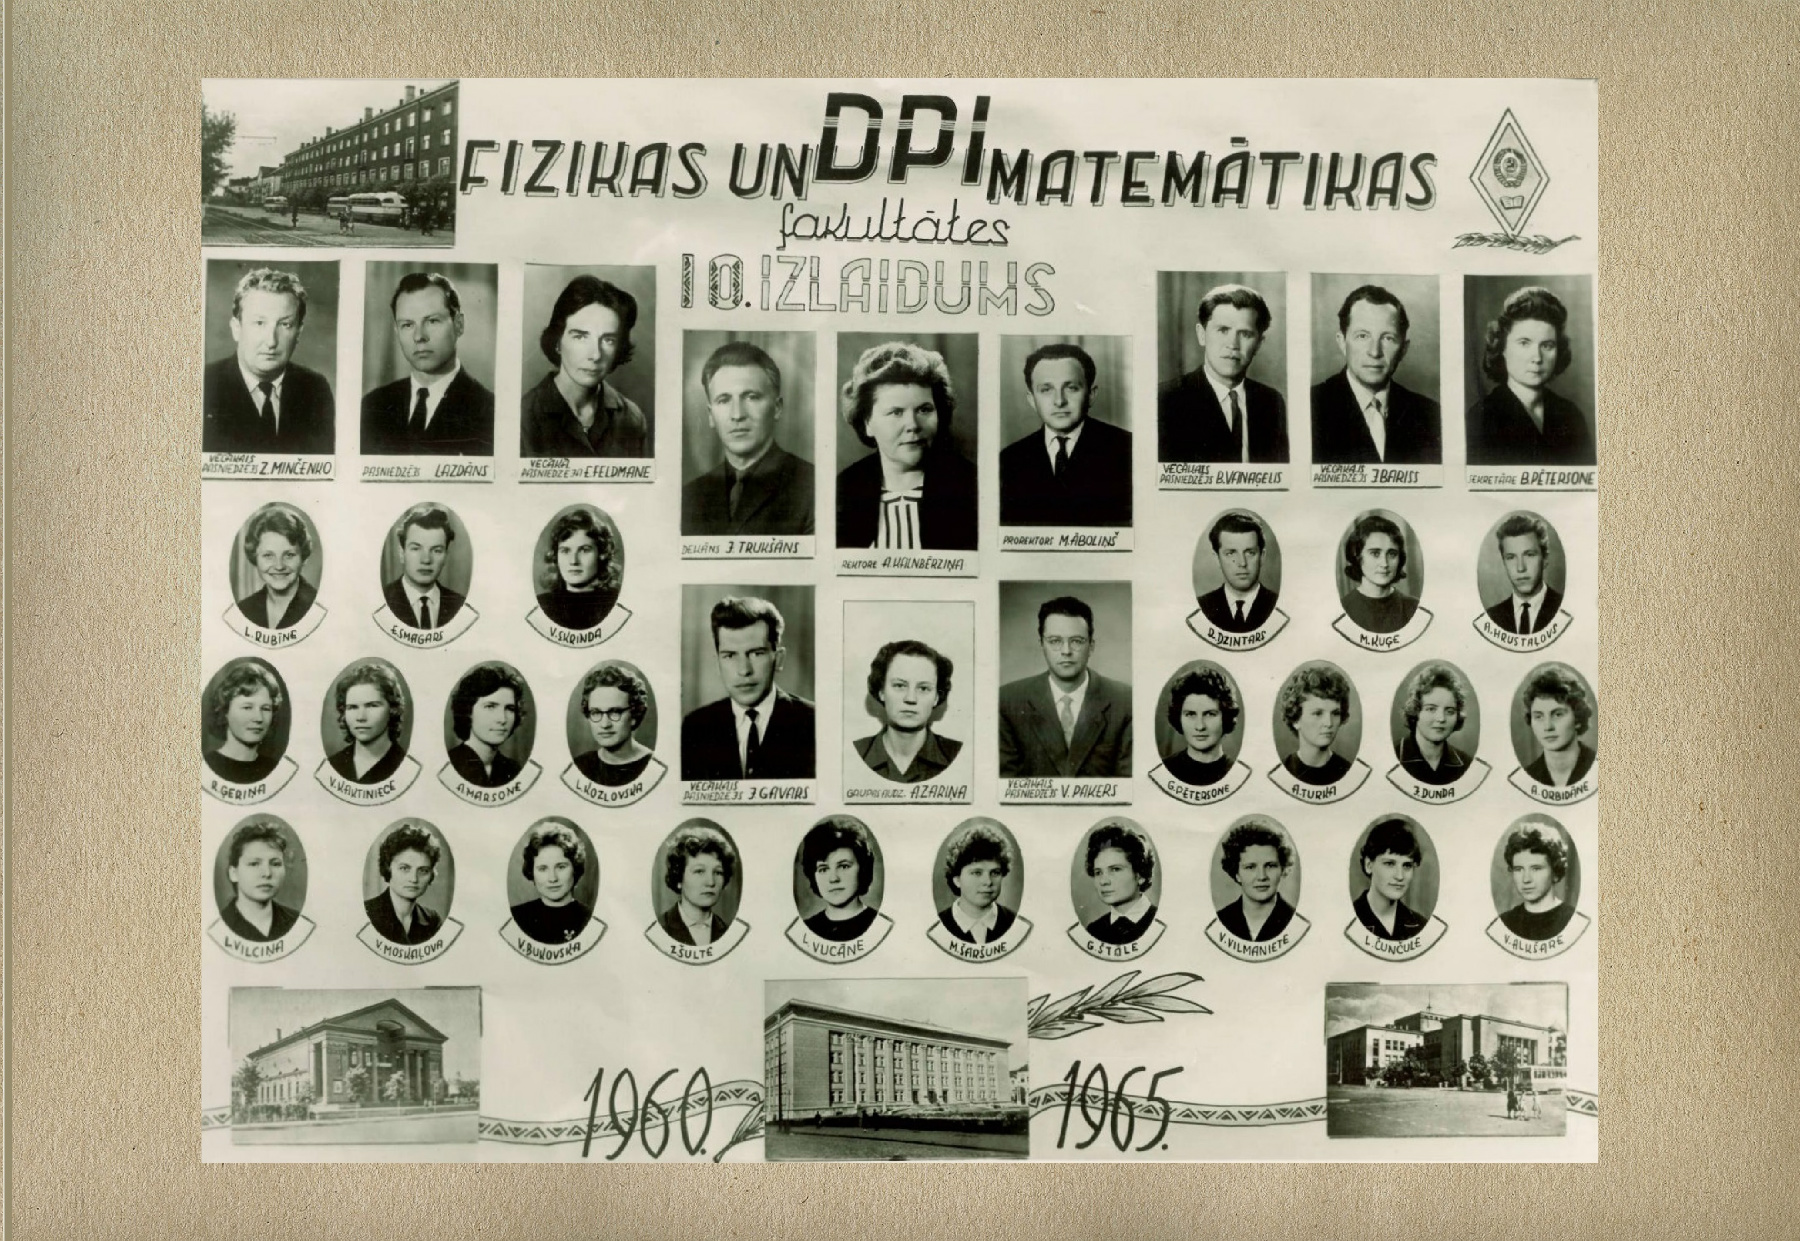 DPI
FIZIKAS UN MATEMĀTIKAS
fakultātes
10. IZLAIDUMS
VECĀKAIS
PASNIEDZĒJS Z. MINČENKO
PASNIEDZĒJS LAZDĀNS
VECĀKĀ
PASNIEDZĒJA E. FELDMANE
DEKĀNS J. TRUKŠĀNS
REKTORE A. KALNBĒRZIŅA
PROREKTORS M. ĀBOLIŅŠ
VECĀKAIS
PASNIEDZĒJS B. VANAĢELIS
VECĀKAIS
PASNIEDZĒJS J. BARISS
SEKRETĀRE B. PĒTERSONE
L. RUBĪNE
E. SMAGARS
V. SKRINDA
R. DZINTARS
M. KUĢE
A. HRUSTAĻOVS
R. GERIŅA
V. KAKTINIECE
A. MARSONE
L. KOZLOVSKA
VECĀKAIS
PASNIEDZĒJS J. GAVARS
GRUPAS AUDZ. A. ZARIŅA
VECĀKAIS
PASNIEDZĒJS V. PAKERS
G. PĒTERSONE
A. TURKA
J. DUNDA
A. ORBIDĀNE
L. VILCIŅA
V. MOSKAĻOVA
V. BUKOVSKA
Z. ŠULTE
L. VUCĀNE
M. ŠARŠUNE
G. ŠTĀLE
V. VILMANIETE
L. ČUNČULE
V. ALKŠARE
1960. 1965.